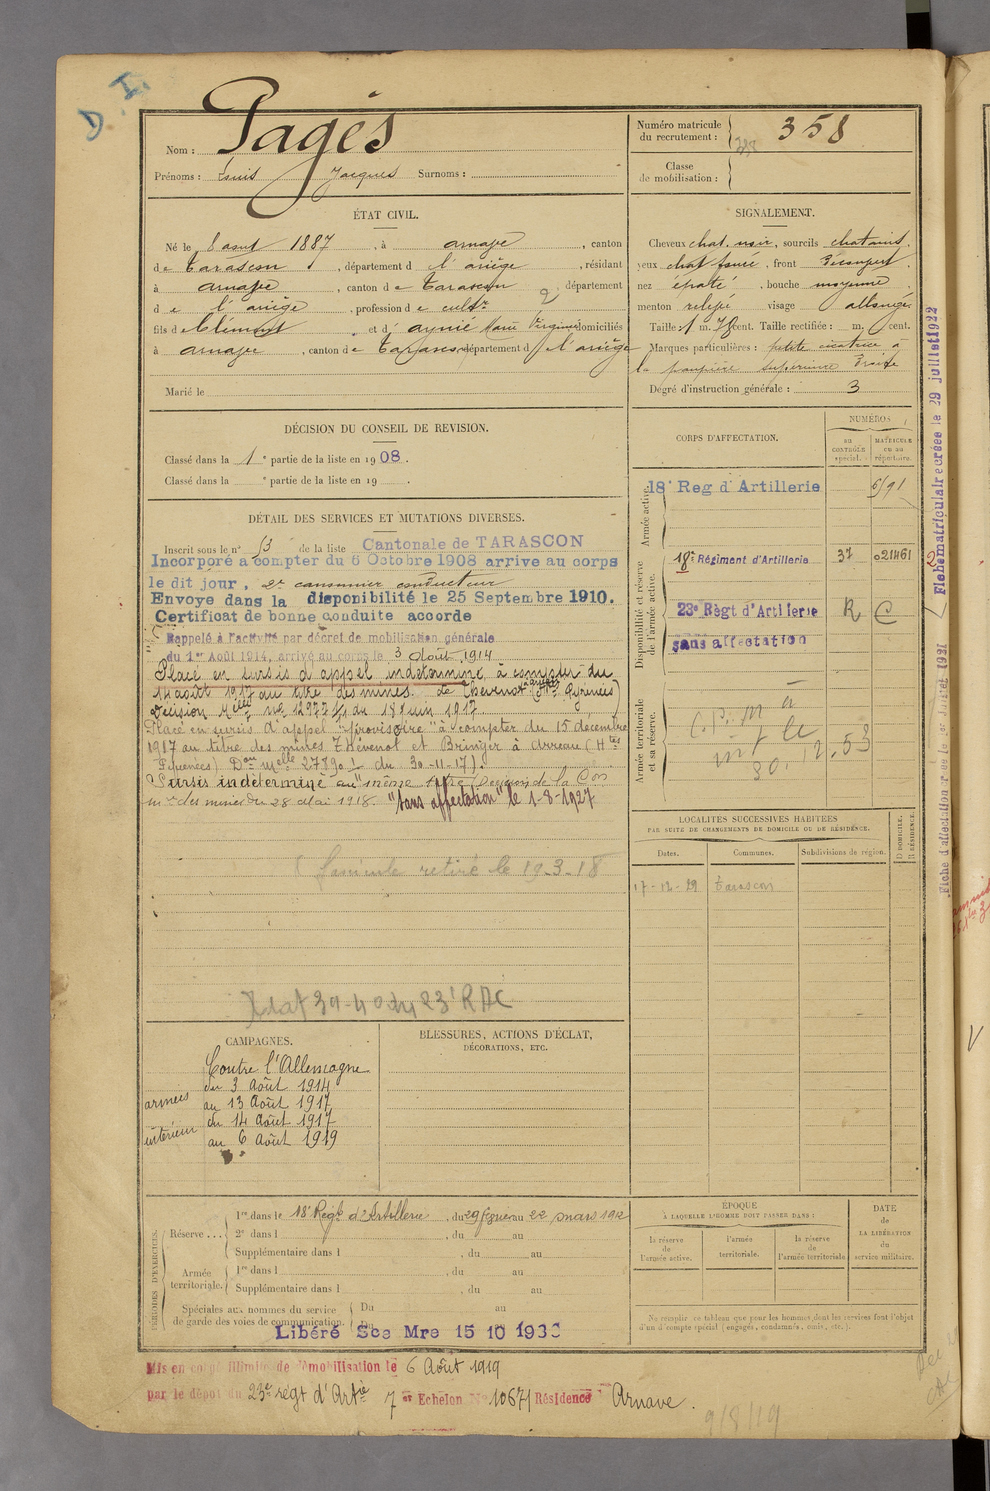 D. I.
Nom : Pagès
Prénoms : Louis Jacques Surnoms :
Numéro matricule
du recrutement : 358
Classe
de mobilisation :
ÉTAT CIVIL.
Né le 8 aout 1887, à arnave, canton
de Tarascon, département d l'ariège, résidant
à arnave, canton de Tarascon, département
d e l'ariège, profession de cultr
2
fils de Clément et d' aynié Marie Virginie domiciliés
à arnave, canton de Tarascon, département d l'ariège
Marié le
SIGNALEMENT.
Cheveux chat. noir, sourcils chatains,
yeux chat foncé, front découvert,
nez épaté, bouche moyenne
menton relevé visage allongé
Taille : 1 m. 78 cent. Taille rectifiée : m. cent.
Marques particulières : petite cicatrice à
la paupière supérieure droite
Degré d'instruction générale : 3
DÉCISION DU CONSEIL DE REVISION.
Classé dans la 1e partie de la liste en 1908.
Classé dans la e partie de la liste en 19
DÉTAIL DES SERVICES ET MUTATIONS DIVERSES.
Inscrit sous le n° 53 de la liste Cantonale de TARASCON
Incorporé à compter du 6 Octobre 1908 arrivé au corps
le dit jour, 2e canonnier conducteur
Envoyé dans la disponibilité le 25 Septembre 1910.
Certificat de bonne conduite accordé
Rappelé à l'activité par décret de mobilisation générale
du 1er Août 1914, arrivé au corps le 3 Août 1914
Placé en sursis d'appel indéterminé à compter du
14 août 1917 au titre des mines de Thévenot (Htes Pyrénées)
Décision Melle No 12977 1/1 du 18 Juin 1917.
Placé en sursis d'appel "provisoire" à compter du 15 décembre
1917 au titre des mines Thévenot et Bringer à Arreau (Htes
Pyrénées) Don Melle 27890 du 30-11-17).
Sursis indéterminé au même titre (Décision de la Con
des mines du 28 Mai 1918. "sans affectation" le 1-8-1927
retiré le 19-3-18
39-40 du 23e RAC
CORPS D'AFFECTATION.
NUMÉROS
au
contrôle
spécial.
MATRICULE
ou au
répertoire.
Armée active.
18e Reg d'Artillerie 6191
Disponibilité et réserve
de l'armée active.
18e Régiment d'Artillerie 37 021461
23e Règt d'Artillerie R C
sans affectation
Armée territoriale
et sa réserve.
30.12.53
LOCALITÉS SUCCESSIVES HABITÉES
PAR SUITE DE CHANGEMENTS DE DOMICILE OU DE RÉSIDENCE.
Dates. Communes. Subdivisions de région. D DOMICILE. R RÉSIDENCE.
17-12-29 Tarascon
CAMPAGNES.
Contre l'Allemagne
armées
du 3 Août 1914
au 13 Août 1917
intérieur
du 14 Août 1917
au 6 Août 1919
BLESSURES, ACTIONS D'ÉCLAT,
DÉCORATIONS, ETC.
PÉRIODES D'EXERCICES.
Réserve ...
1re dans le 18e Régt d'Artillerie, du 29 février au 22 mars 1912
2e dans l , du au
Supplémentaire dans l , du au
Armée
territoriale.
1re dans l , du au
Supplémentaire dans l , du au
Spéciales aux hommes du service
de garde des voies de communication.
Du au
Du
Libéré Sce Mre 15 10 1936
ÉPOQUE
À LAQUELLE L'HOMME DOIT PASSER DANS :
la réserve
de
l'armée active.
l'armée
territoriale.
la réserve
de
l'armée territoriale.
DATE
de
LA LIBÉRATION
du
service militaire.
Ne remplir ce tableau que pour les hommes dont les services font l'objet
d'un d compte spécial (engagés, condamnés, omis, etc.).
Mis en congé illimité de démobilisation le 6 Août 1919
par le dépôt du 23e régt d'Artie 7e Echelon No 10671 Résidence Arnave.
9/8/19
Fiche matriculaire créée le 29 juillet 1922
Fiche d'affectation